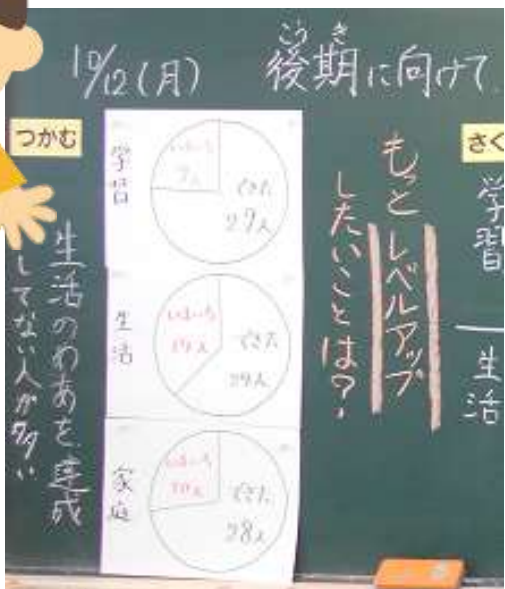 10/12(月) 後期に向けて
こうき
つかむ
学習
いまいち
できた
27人
生活
いまいち
できた
家庭
いまいち
できた
28人
生活のめあてを達成
してない人が多い
もっとレベルアップ
したいことは?
さく
学習
生活